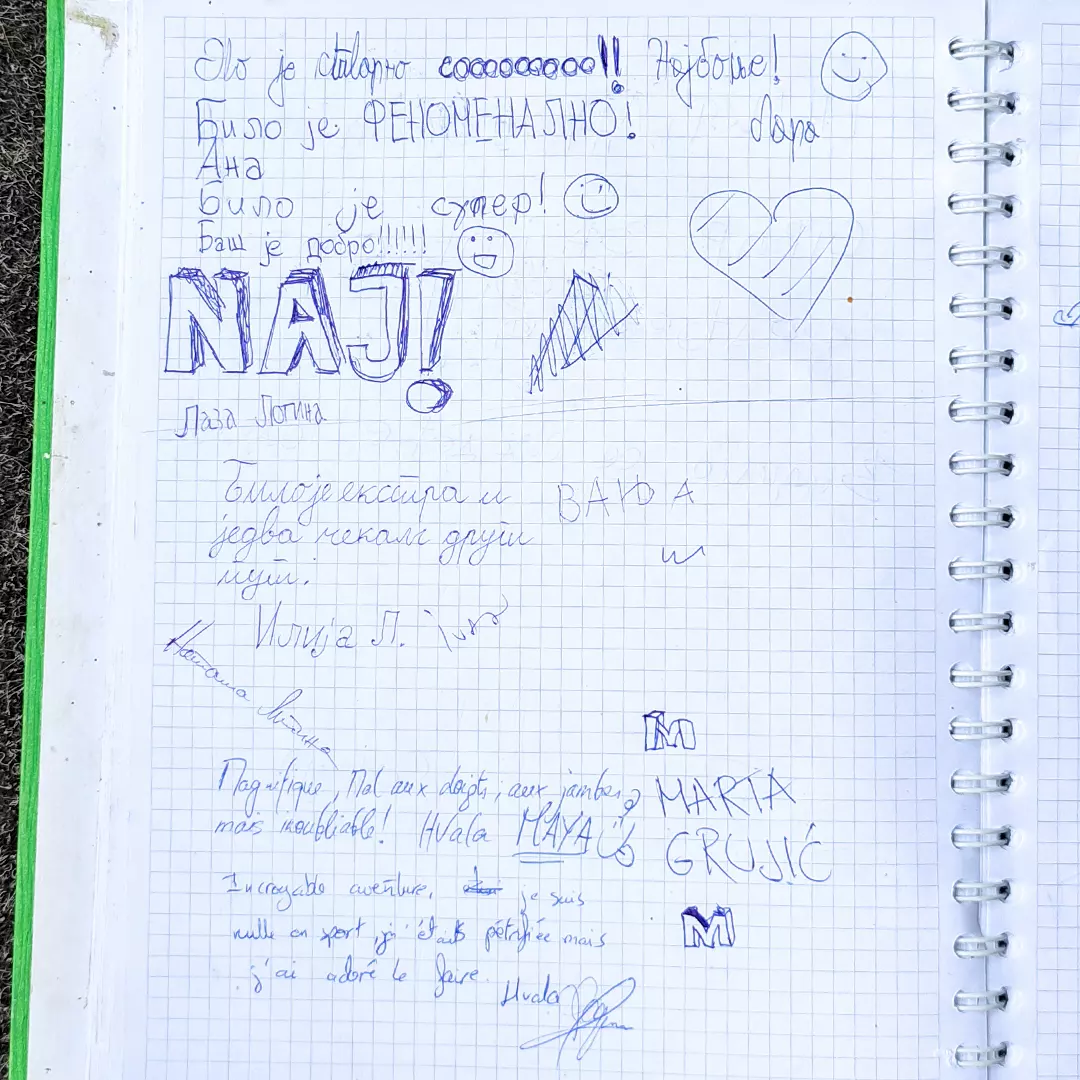 Ово је стварно coooooooooo!! Најбоље!
Било је ФЕНОМЕНАЛНО! Лара
Ана
Било је супер!
Баш је добро!!!!!!
NAJ!
Лаза Лопина
Било је екстра и
једва чекам други
пут.
ВАЊА
Илија Л.
Наташа
M
Magnifique, Mal aux doigts, aux jambes,
mais inoubliable! Hvala MAYA
MARTA
GRUJIĆ
Incroyable aventure, je suis
nulle en sport, j'étais pétrifiée mais
j'ai adoré le faire.
Hvala
M